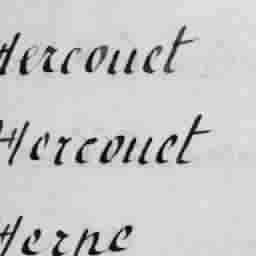 Hercouet
Hercouet
Herne